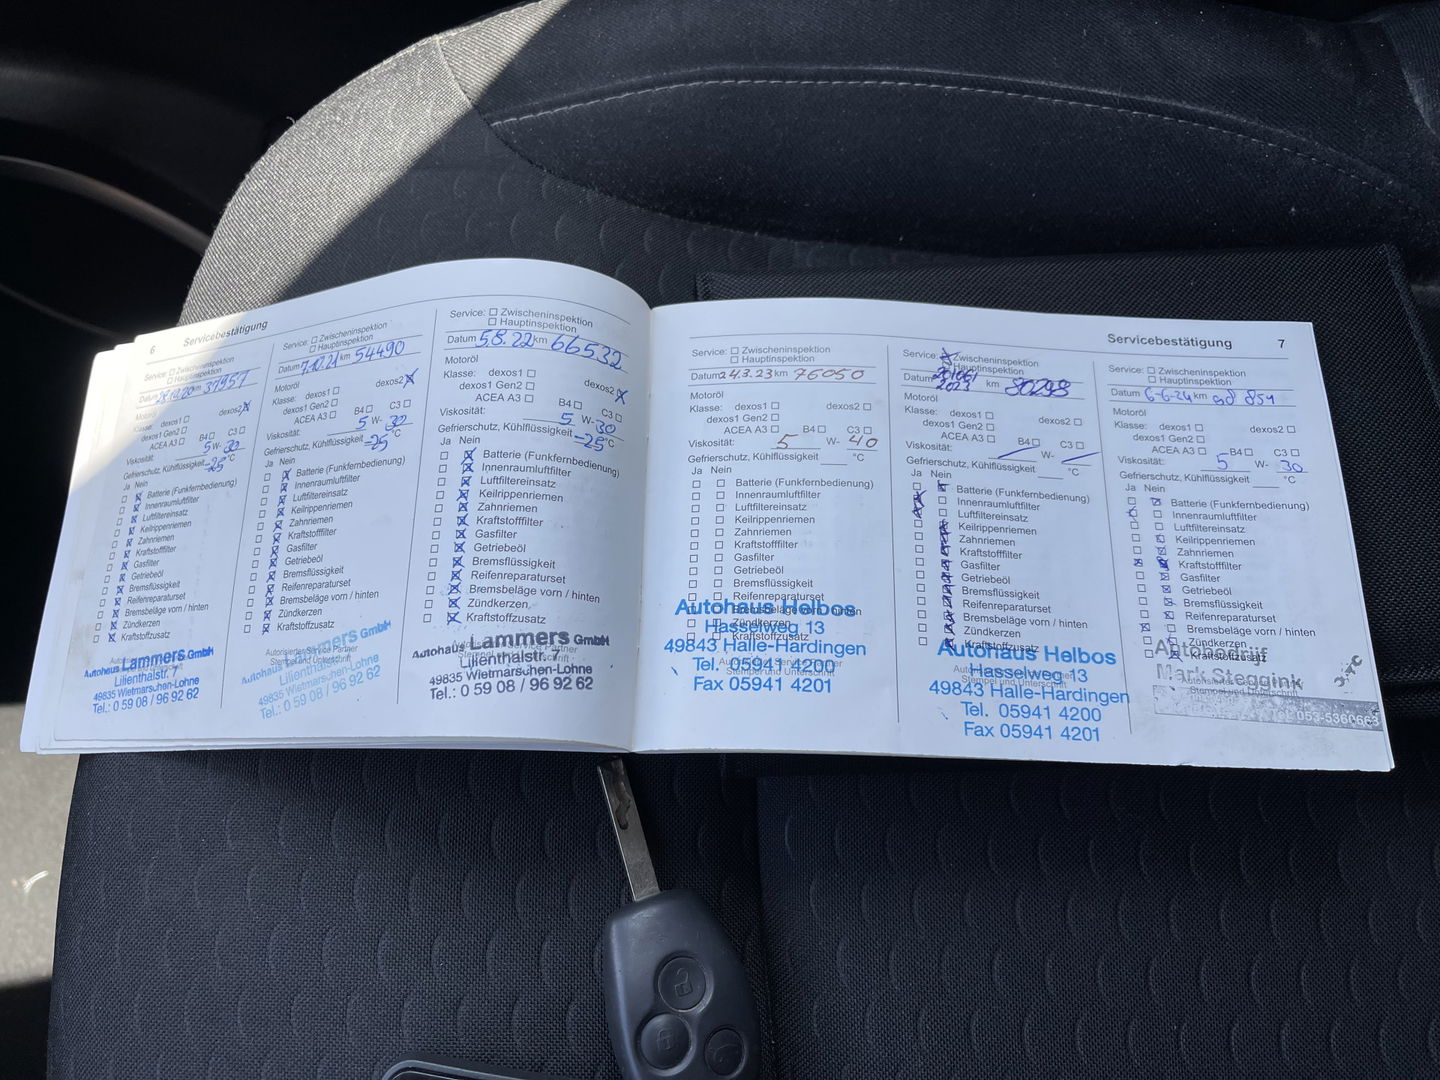 6 Servicebestätigung
Service: Zwischeninspektion
Hauptinspektion
Datum km 37957
Motoröl
Klasse: dexos1 dexos2
dexos1 Gen2
ACEA A3 B4 C3
Viskosität: 5 W- 30
Gefrierschutz, Kühlflüssigkeit -25 °C
Ja Nein
Batterie (Funkfernbedienung)
Innenraumluftfilter
Luftfiltereinsatz
Keilrippenriemen
Zahnriemen
Kraftstofffilter
Gasfilter
Getriebeöl
Bremsflüssigkeit
Reifenreparaturset
Bremsbeläge vorn / hinten
Zündkerzen
Kraftstoffzusatz
Autohaus Lammers GmbH
Lilienthalstr. 7
49835 Wietmarschen-Lohne
Tel.: 0 59 08 / 96 92 62
Service: Zwischeninspektion
Hauptinspektion
Datum 7.12.21 km 54490
Motoröl
Klasse: dexos1 dexos2
dexos1 Gen2
ACEA A3 B4 C3
Viskosität: 5 W- 30
Gefrierschutz, Kühlflüssigkeit -25 °C
Ja Nein
Batterie (Funkfernbedienung)
Innenraumluftfilter
Luftfiltereinsatz
Keilrippenriemen
Zahnriemen
Kraftstofffilter
Gasfilter
Getriebeöl
Bremsflüssigkeit
Reifenreparaturset
Bremsbeläge vorn / hinten
Zündkerzen
Kraftstoffzusatz
Autorisierter Service Partner
Stempel und Unterschrift
Autohaus Lammers GmbH
Lilienthalstr. 7
49835 Wietmarschen-Lohne
Tel.: 0 59 08 / 96 92 62
Service: Zwischeninspektion
Hauptinspektion
Datum 5.8.22 km 66532
Motoröl
Klasse: dexos1 dexos2
dexos1 Gen2
ACEA A3 B4 C3
Viskosität: 5 W- 30
Gefrierschutz, Kühlflüssigkeit -25 °C
Ja Nein
Batterie (Funkfernbedienung)
Innenraumluftfilter
Luftfiltereinsatz
Keilrippenriemen
Zahnriemen
Kraftstofffilter
Gasfilter
Getriebeöl
Bremsflüssigkeit
Reifenreparaturset
Bremsbeläge vorn / hinten
Zündkerzen
Kraftstoffzusatz
Autohaus Lammers GmbH
Lilienthalstr. 7
49835 Wietmarschen-Lohne
Tel.: 0 59 08 / 96 92 62
Servicebestätigung 7
Service: Zwischeninspektion
Hauptinspektion
Datum 24.3.23 km 76050
Motoröl
Klasse: dexos1 dexos2
dexos1 Gen2
ACEA A3 B4 C3
Viskosität: 5 W- 40
Gefrierschutz, Kühlflüssigkeit °C
Ja Nein
Batterie (Funkfernbedienung)
Innenraumluftfilter
Luftfiltereinsatz
Keilrippenriemen
Zahnriemen
Kraftstofffilter
Gasfilter
Getriebeöl
Bremsflüssigkeit
Reifenreparaturset
Bremsbeläge vorn / hinten
Zündkerzen
Kraftstoffzusatz
Autohaus Helbos
Hasselweg 13
49843 Halle-Hardingen
Tel. 05941 4200
Fax 05941 4201
Service: Zwischeninspektion
Hauptinspektion
Datum 2023 km 80298
Motoröl
Klasse: dexos1 dexos2
dexos1 Gen2
ACEA A3 B4 C3
Viskosität: W-
Gefrierschutz, Kühlflüssigkeit °C
Ja Nein
Batterie (Funkfernbedienung)
Innenraumluftfilter
Luftfiltereinsatz
Keilrippenriemen
Zahnriemen
Kraftstofffilter
Gasfilter
Getriebeöl
Bremsflüssigkeit
Reifenreparaturset
Bremsbeläge vorn / hinten
Zündkerzen
Kraftstoffzusatz
Autohaus Helbos
Hasselweg 13
49843 Halle-Hardingen
Tel. 05941 4200
Fax 05941 4201
Service: Zwischeninspektion
Hauptinspektion
Datum 6-6-24 km 98 851
Motoröl
Klasse: dexos1 dexos2
dexos1 Gen2
ACEA A3 B4 C3
Viskosität: 5 W- 30
Gefrierschutz, Kühlflüssigkeit °C
Ja Nein
Batterie (Funkfernbedienung)
Innenraumluftfilter
Luftfiltereinsatz
Keilrippenriemen
Zahnriemen
Kraftstofffilter
Gasfilter
Getriebeöl
Bremsflüssigkeit
Reifenreparaturset
Bremsbeläge vorn / hinten
Zündkerzen
Kraftstoffzusatz
Autobedrijf
Mark Steggink
Stempel und Unterschrift
Tel. 053-5360663